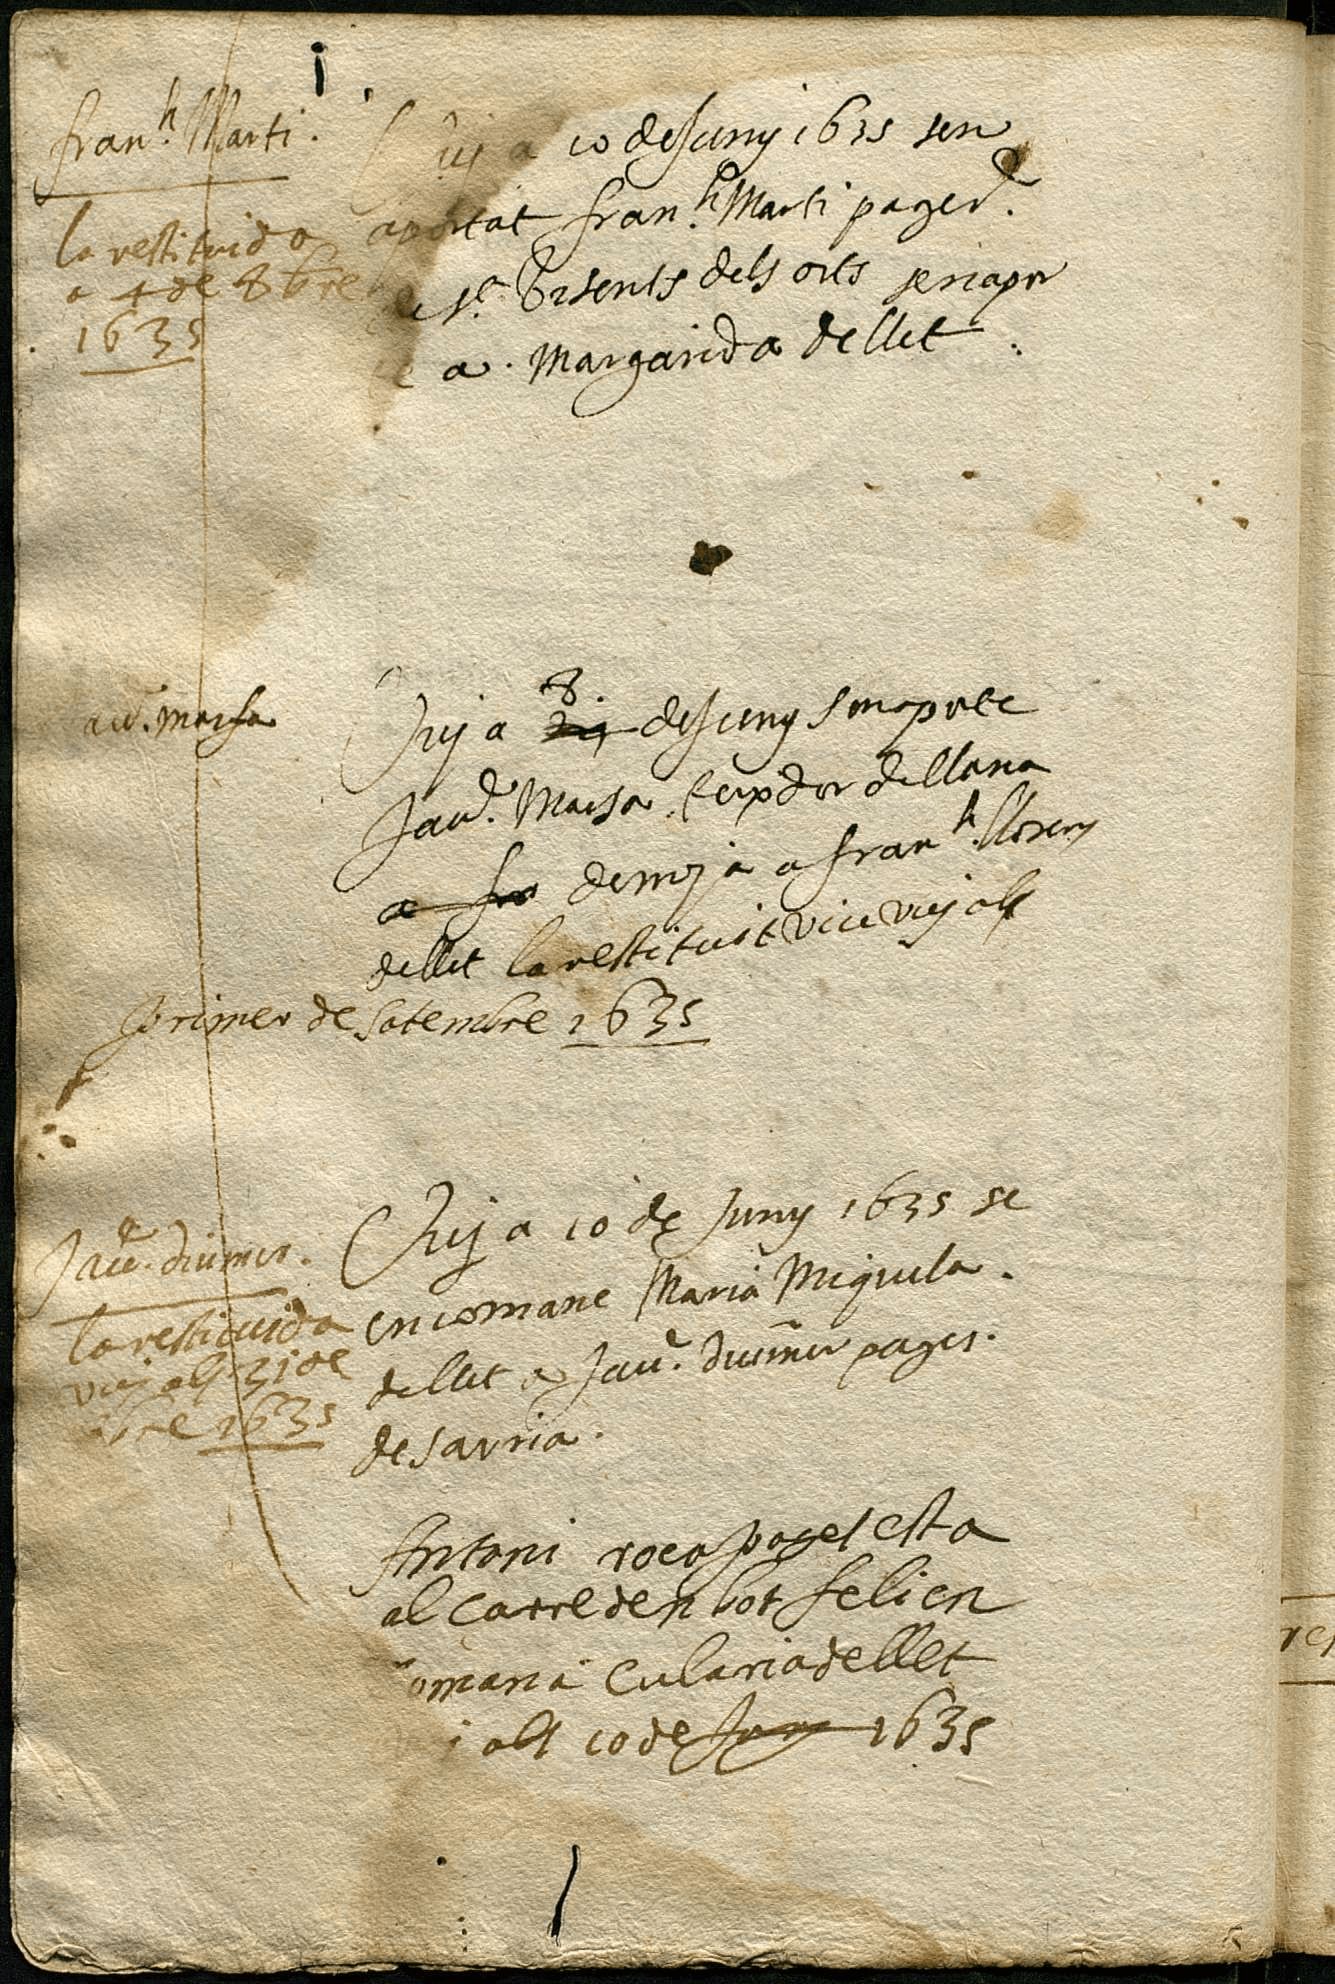 franh. Marti.
la restituida
a 4 de 8bre
1635
Vuj a 10 de Juny 1635 sen
aportat franh. Marti pager.
de St. Visents dels orts
a. Margarida de llet.
Jau. Marsa
Vuj a 8 de Juny
Jau. Marsa. texidor de llana
a fra de moja a franh. llorens
de llet la restituit vuy als
primer de satembre 1635
Jaue. diumer.
la restituida
vuy als 31 de
1635
Vuj a 10 de Juny 1635 se
encomane Maria Miquela.
de llet a Jau. diumer pages.
de sarria.
Antoni roca pages esta
al carre den bot feli en
comana Eularia de llet
als 10 de Juny 1635